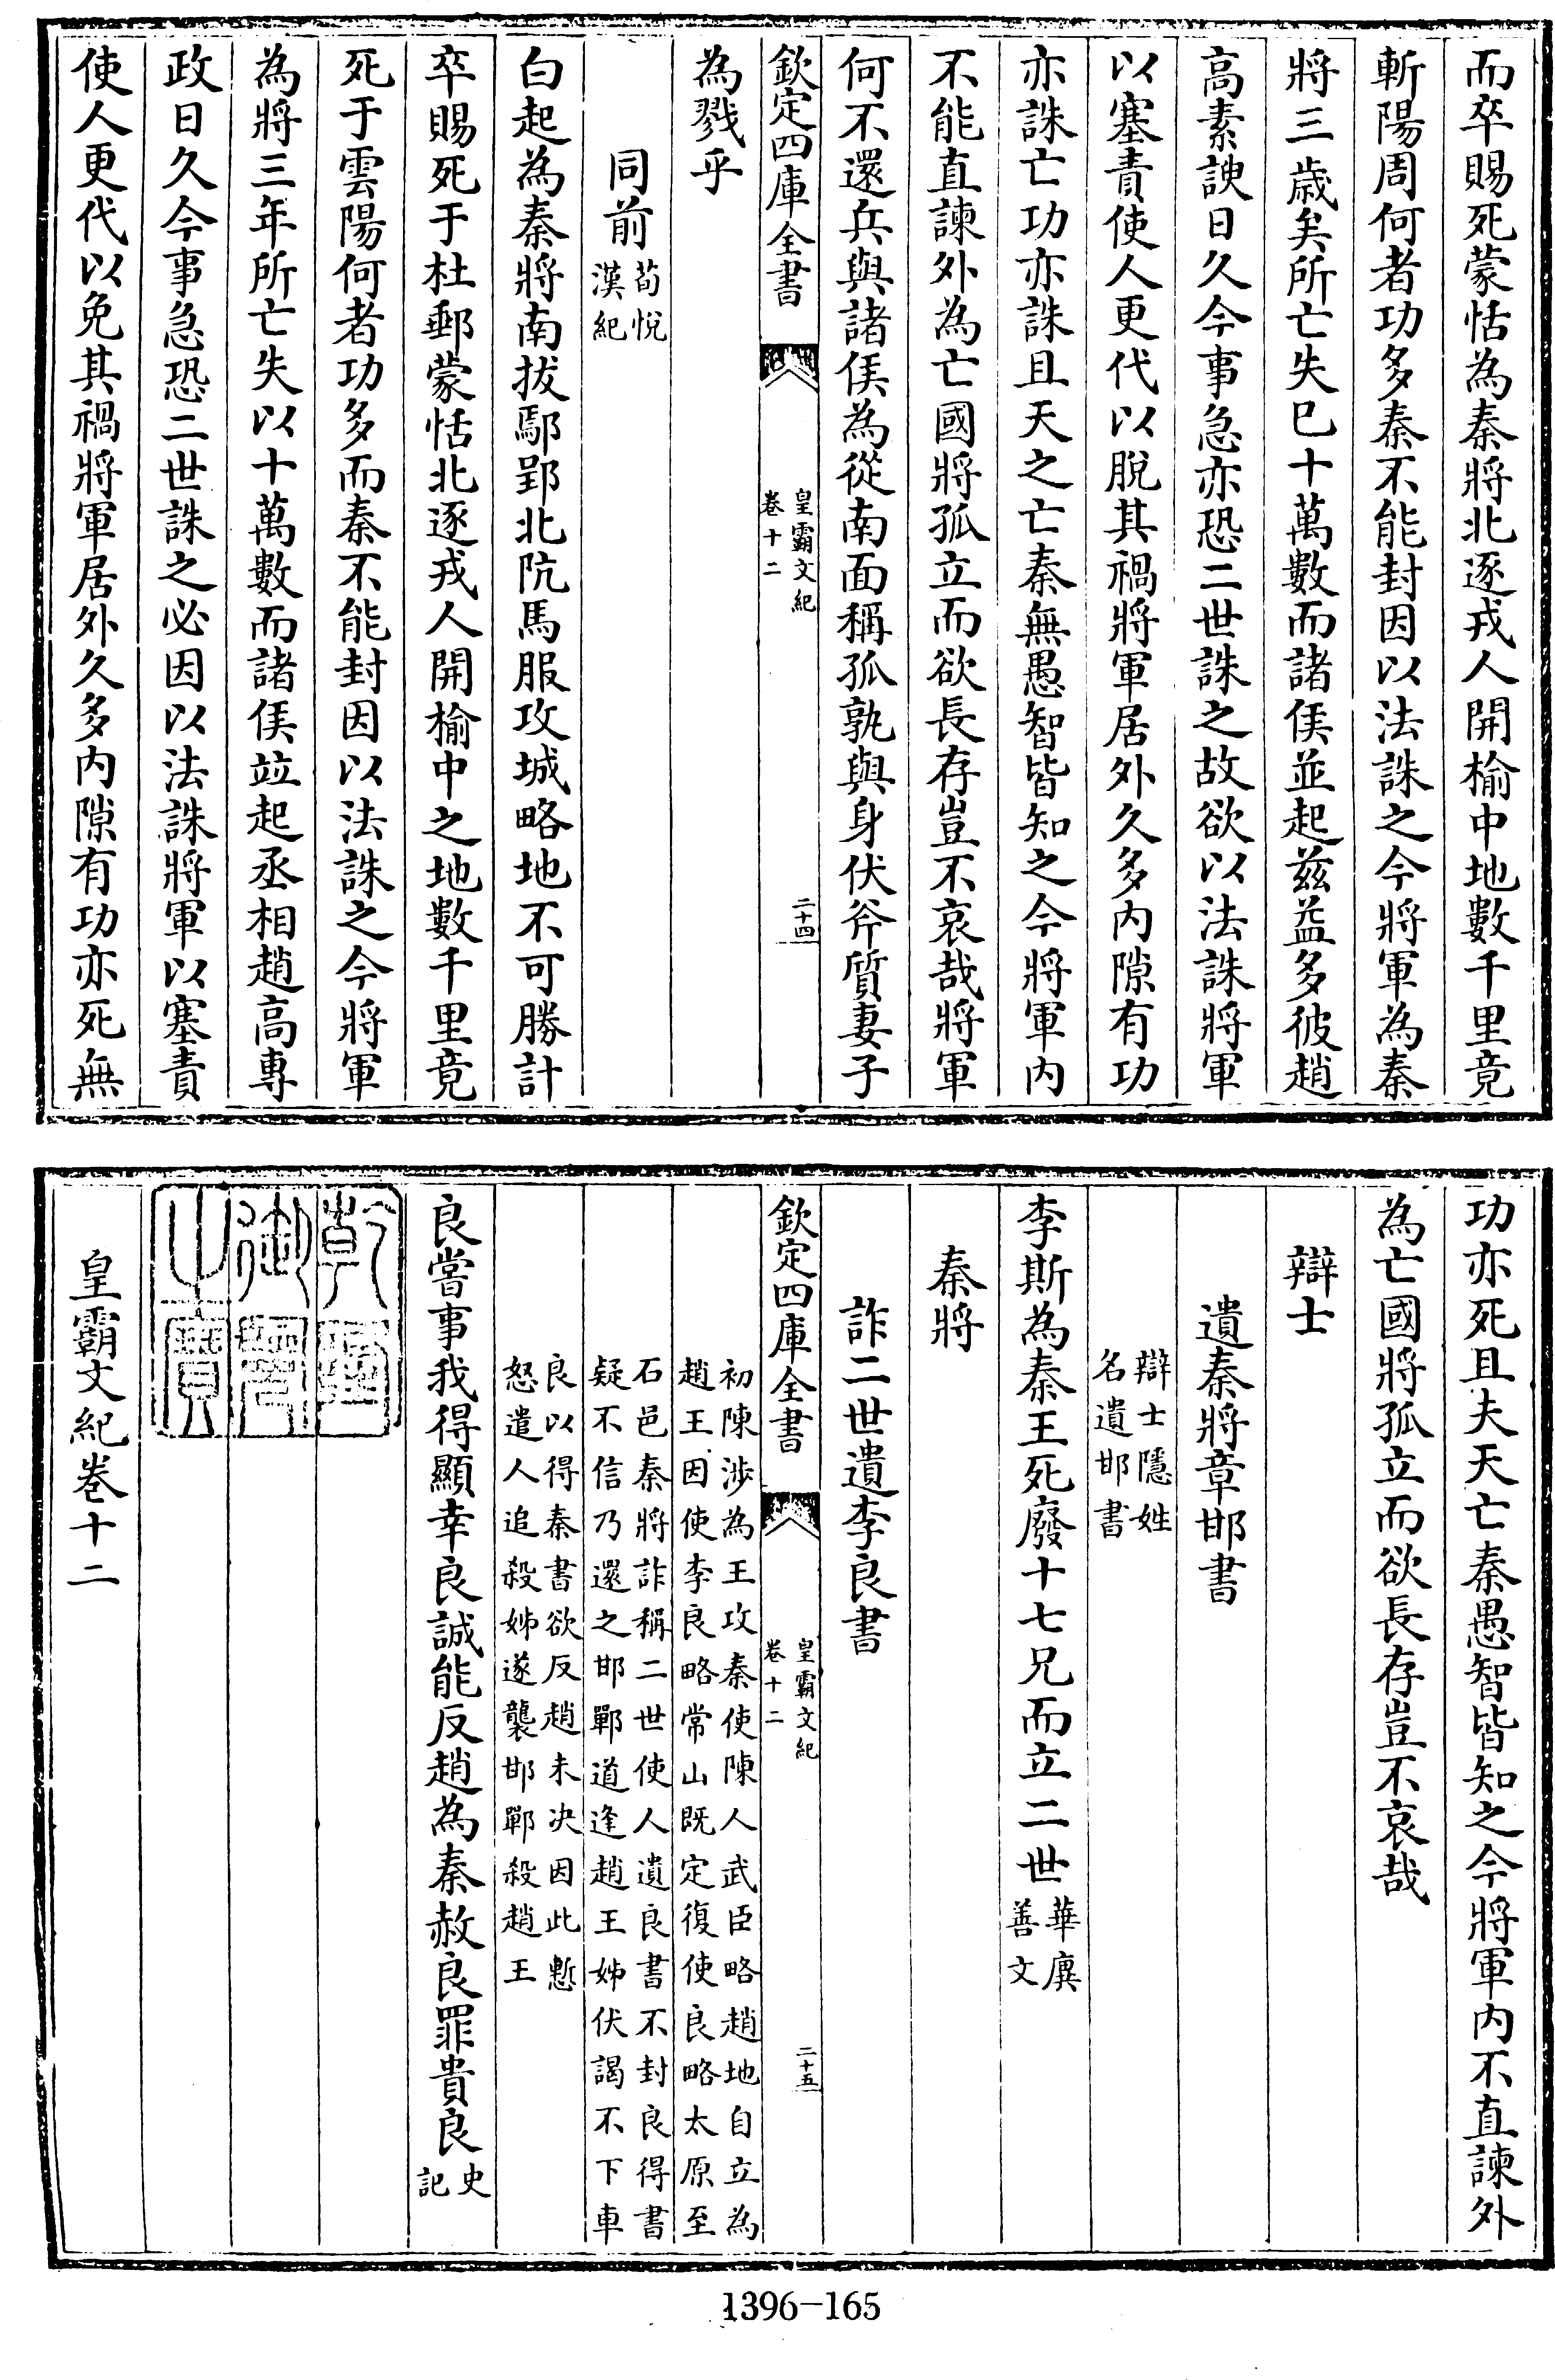 而卒賜死蒙恬為秦將北逐戎人開榆中地數千里竟
斬陽周何者功多秦不能封因以法誅之今將軍為秦
將三歲矣所亡失已十萬數而諸侯並起茲益多彼趙
高素諛日久今事急亦恐二世誅之故欲以法誅將軍
以塞責使人更代以脫其禍將軍居外久多內隙有功
亦誅亡功亦誅且天之亡秦無愚智皆知之今將軍內
不能直諫外為亡國將孤立而欲長存豈不哀哉將軍
何不還兵與諸侯為從南面稱孤孰與身伏斧質妻子
欽定四庫全書
皇霸文紀
卷十二
二十四
為戮乎
同前
荀悅
漢紀
白起為秦將南拔鄢郢北阬馬服攻城略地不可勝計
卒賜死于杜郵蒙恬北逐戎人開榆中之地數千里竟
死于雲陽何者功多而秦不能封因以法誅之今將軍
為將三年所亡失以十萬數而諸侯竝起丞相趙高專
政日久今事急恐二世誅之必因以法誅將軍以塞責
使人更代以免其禍將軍居外久多內隙有功亦死無
功亦死且夫天亡秦愚智皆知之今將軍內不直諫外
為亡國將孤立而欲長存豈不哀哉
辯士
遺秦將章邯書
辯士隱姓
名遺邯書
李斯為秦王死廢十七兄而立二世
華廙
善文
秦將
詐二世遺李良書
欽定四庫全書
皇霸文紀
卷十二
二十五
初陳涉為王攻秦使陳人武臣略趙地自立為
趙王因使李良略常山既定復使良略太原至
石邑秦將詐稱二世使人遺良書不封良得書
疑不信乃還之邯鄲道逢趙王姊伏謁不下車
良以得秦書欲反趙未決因此慙
怒遣人追殺姊遂襲邯鄲殺趙王
良嘗事我得顯幸良誠能反趙為秦赦良罪貴良
史
記
乾隆
御覽
之寶
皇霸文紀卷十二
1396-165